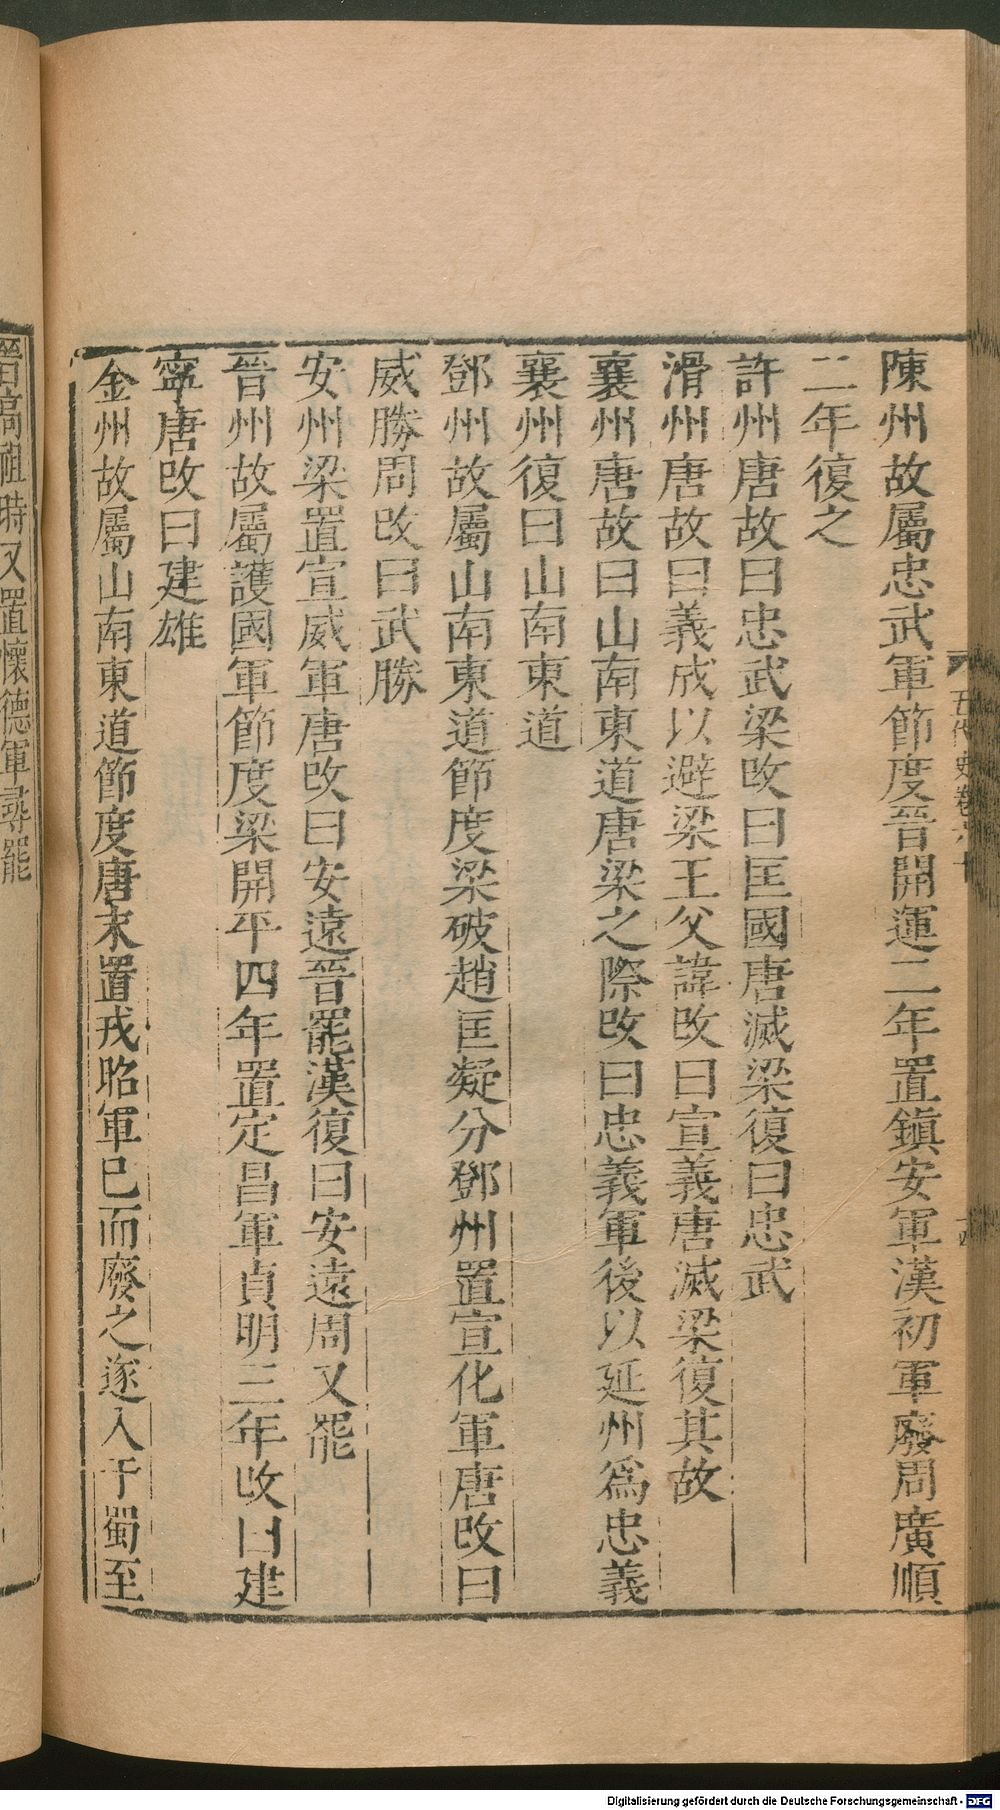 陳州故屬忠武軍節度晉開運二年置鎭安軍漢初軍廢周廣順
二年復之
許州唐故曰忠武梁改曰匡國唐滅梁復曰忠武
滑州唐故曰義成以避梁王父諱改曰宣義唐滅梁復其故
襄州唐故曰山南東道唐梁之際改曰忠義軍後以延州爲忠義
襄州復曰山南東道
鄧州故屬山南東道節度梁破趙匡凝分鄧州置宣化軍唐改曰
威勝周改曰武勝
安州梁置宣威軍唐改曰安遠晉罷漢復曰安遠周又罷
晉州故屬護國軍節度梁開平四年置定昌軍貞明三年改曰建
寧唐改曰建雄
金州故屬山南東道節度唐末置戎昭軍已而廢之遂入于蜀至
晉高祖時又置懷德軍尋罷
五代史卷六十
十四
Digitalisierung gefördert durch die Deutsche Forschungsgemeinschaft - DFG